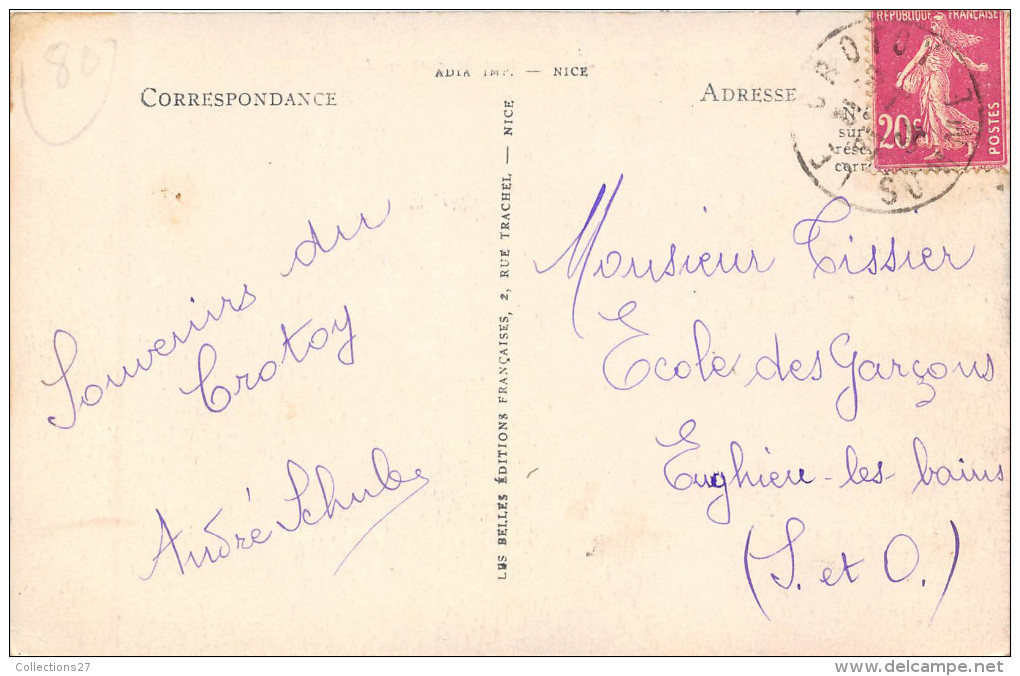 80
ADIA IMP. — NICE
CORRESPONDANCE
Souvenirs du
Crotoy
André Schuler
LES BELLES ÉDITIONS FRANÇAISES, 2, RUE TRACHEL, — NICE
ADRESSE
REPUBLIQUE FRANÇAISE
20c
POSTES
LE CROTOY
SOMME
sur
corr
Monsieur Tissier
Ecole des Garçons
Enghien-les-bains
(S. et O.)
Collections27
delcampe.net